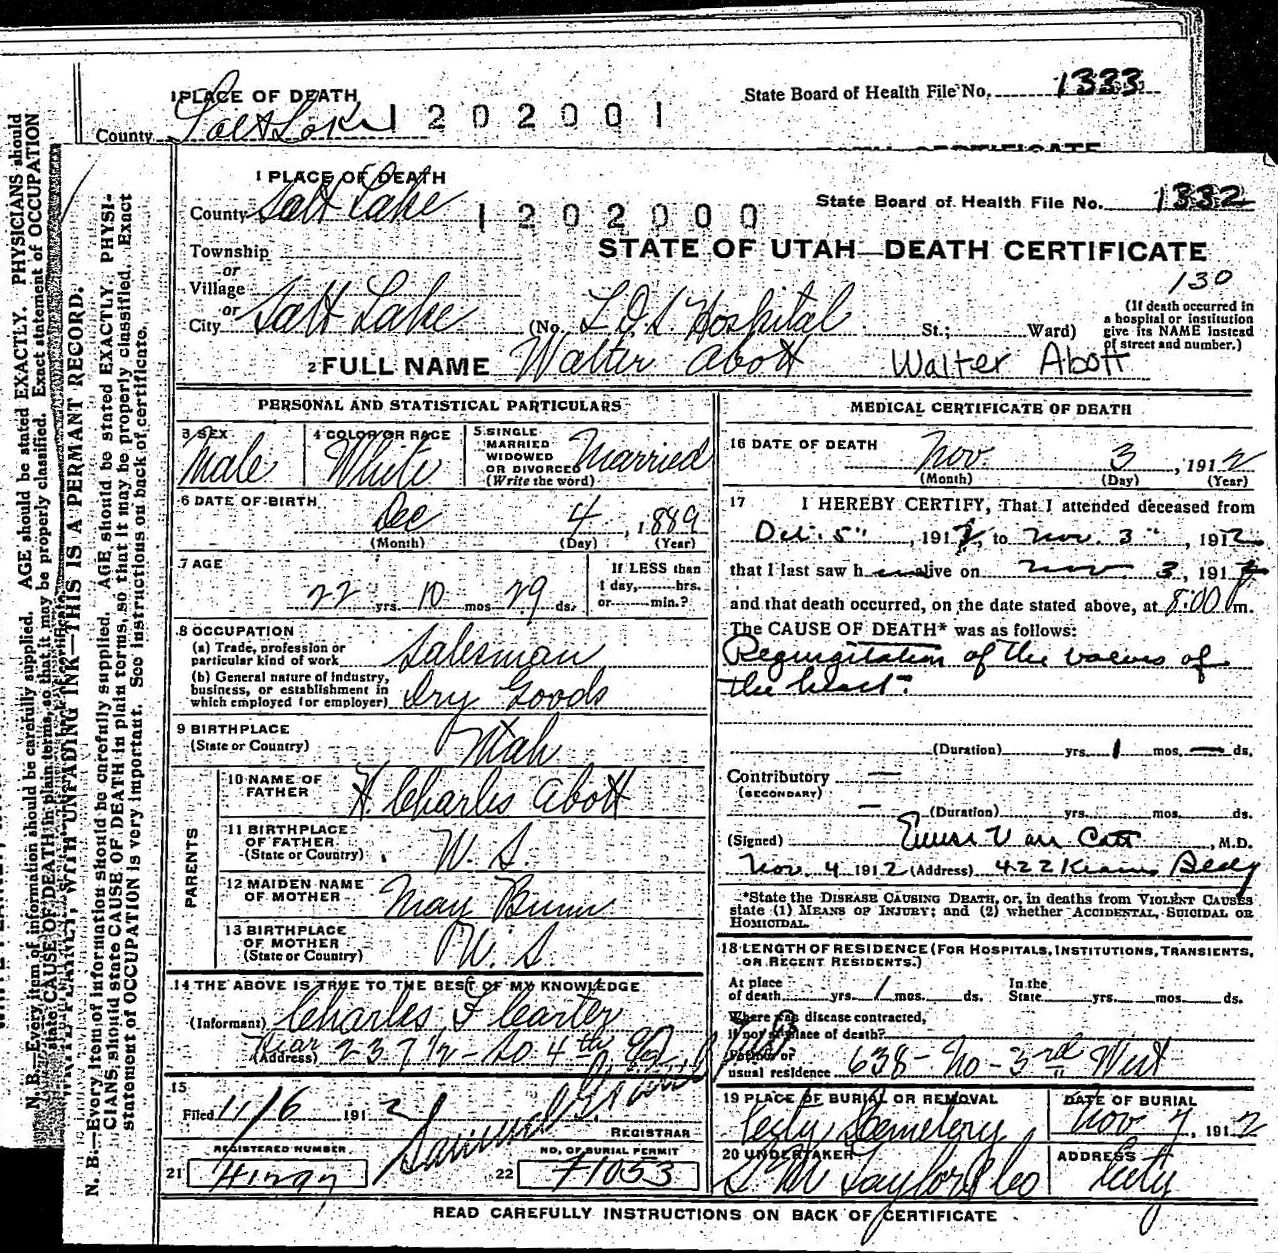 1 PLACE OF DEATH
County Salt Lake 1202001
State Board of Health File No. 1333
1 PLACE OF DEATH
County Salt Lake 1202000
State Board of Health File No. 1332
STATE OF UTAH—DEATH CERTIFICATE
Township
or
Village
130
or
City Salt Lake (No. L D S Hospital St.; Ward)
(If death occurred in a hospital or institution give its NAME instead of street and number.)
2 FULL NAME Walter Abott Walter Abott
PERSONAL AND STATISTICAL PARTICULARS
3 SEX Male
4 COLOR OR RACE White
5 SINGLE MARRIED WIDOWED OR DIVORCED (Write the word) Married
6 DATE OF BIRTH
Dec 4, 1889
(Month) (Day) (Year)
7 AGE
22 yrs. 10 mos 29 ds.
If LESS than
1 day, hrs.
or min.?
8 OCCUPATION
(a) Trade, profession or
particular kind of work Salesman
(b) General nature of industry,
business, or establishment in
which employed (or employer) Dry Goods
9 BIRTHPLACE
(State or Country) Utah
PARENTS
10 NAME OF
FATHER H Charles Abott
11 BIRTHPLACE
OF FATHER
(State or Country) U. S.
12 MAIDEN NAME
OF MOTHER May Bunn
13 BIRTHPLACE
OF MOTHER
(State or Country) U. S.
14 THE ABOVE IS TRUE TO THE BEST OF MY KNOWLEDGE
(Informant) Charles F Carter
(Address) Rear 237 1/2 - So 4th
15
Filed 11/6 1912
REGISTRAR
REGISTERED NUMBER
21
NO. OF BURIAL PERMIT
22 71053
MEDICAL CERTIFICATE OF DEATH
16 DATE OF DEATH
Nov. 3, 1912
(Month) (Day) (Year)
17 I HEREBY CERTIFY, That I attended deceased from
5", 1912, to Nov. 3", 1912
that I last saw h alive on Nov. 3, 1912
and that death occurred, on the date stated above, at 8:00 m.
The CAUSE OF DEATH* was as follows:
Regurgitation of the valves of
the heart.
(Duration) yrs. 1 mos. — ds.
Contributory —
(SECONDARY)
— (Duration) yrs. mos. ds.
(Signed) Van Cott, M.D.
Nov. 4 1912 (Address) 422 Kearns Bldg
*State the DISEASE CAUSING DEATH, or, in deaths from VIOLENT CAUSES
state (1) MEANS OF INJURY; and (2) whether ACCIDENTAL, SUICIDAL OR
HOMICIDAL.
18 LENGTH OF RESIDENCE (FOR HOSPITALS, INSTITUTIONS, TRANSIENTS,
OR RECENT RESIDENTS.)
At place
of death yrs. 1 mos. ds.
In the
State yrs. mos. ds.
Where was disease contracted,
if not at place of death?
Former or
usual residence 638 - No - 3rd West
19 PLACE OF BURIAL OR REMOVAL
City Cemetery
DATE OF BURIAL
Nov 7, 1912
20 UNDERTAKER
S M Taylor & Co
ADDRESS
City
READ CAREFULLY INSTRUCTIONS ON BACK OF CERTIFICATE
N. B.—Every item of information should be carefully supplied. AGE should be stated EXACTLY. PHYSICIANS should
state CAUSE OF DEATH in plain terms, so that it may be properly classified. Exact statement of OCCUPATION
WITH UNFADING INK—THIS IS A PERMANT RECORD.
N. B.—Every item of information should be carefully supplied. AGE should be stated EXACTLY. PHYSI-
CIANS should state CAUSE OF DEATH in plain terms, so that it may be properly classified. Exact
statement of OCCUPATION is very important. See instructions on back of certificate.